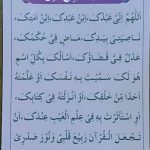 اَللّٰهُمَّ اِنِّيْ عَبْدُكَ، اِبْنُ عَبْدِكَ، اِبْنُ اَمَتِكَ،
نَاصِيَتِيْ بِيَدِكَ، مَاضٍ فِيَّ حُكْمُكَ،
عَدْلٌ فِيَّ قَضَاؤُكَ، اَسْاَلُكَ بِكُلِّ اسْمٍ
هُوَ لَكَ سَمَّيْتَ بِهِ نَفْسَكَ اَوْ عَلَّمْتَهُ
اَحَدًا مِنْ خَلْقِكَ، اَوْ اَنْزَلْتَهُ فِيْ كِتَابِكَ،
اَوِ اسْتَاْثَرْتَ بِهِ فِيْ عِلْمِ الْغَيْبِ عِنْدَكَ، اَنْ
تَجْعَلَ الْقُرْاٰنَ رَبِيْعَ قَلْبِيْ وَنُوْرَ صَدْرِيْ